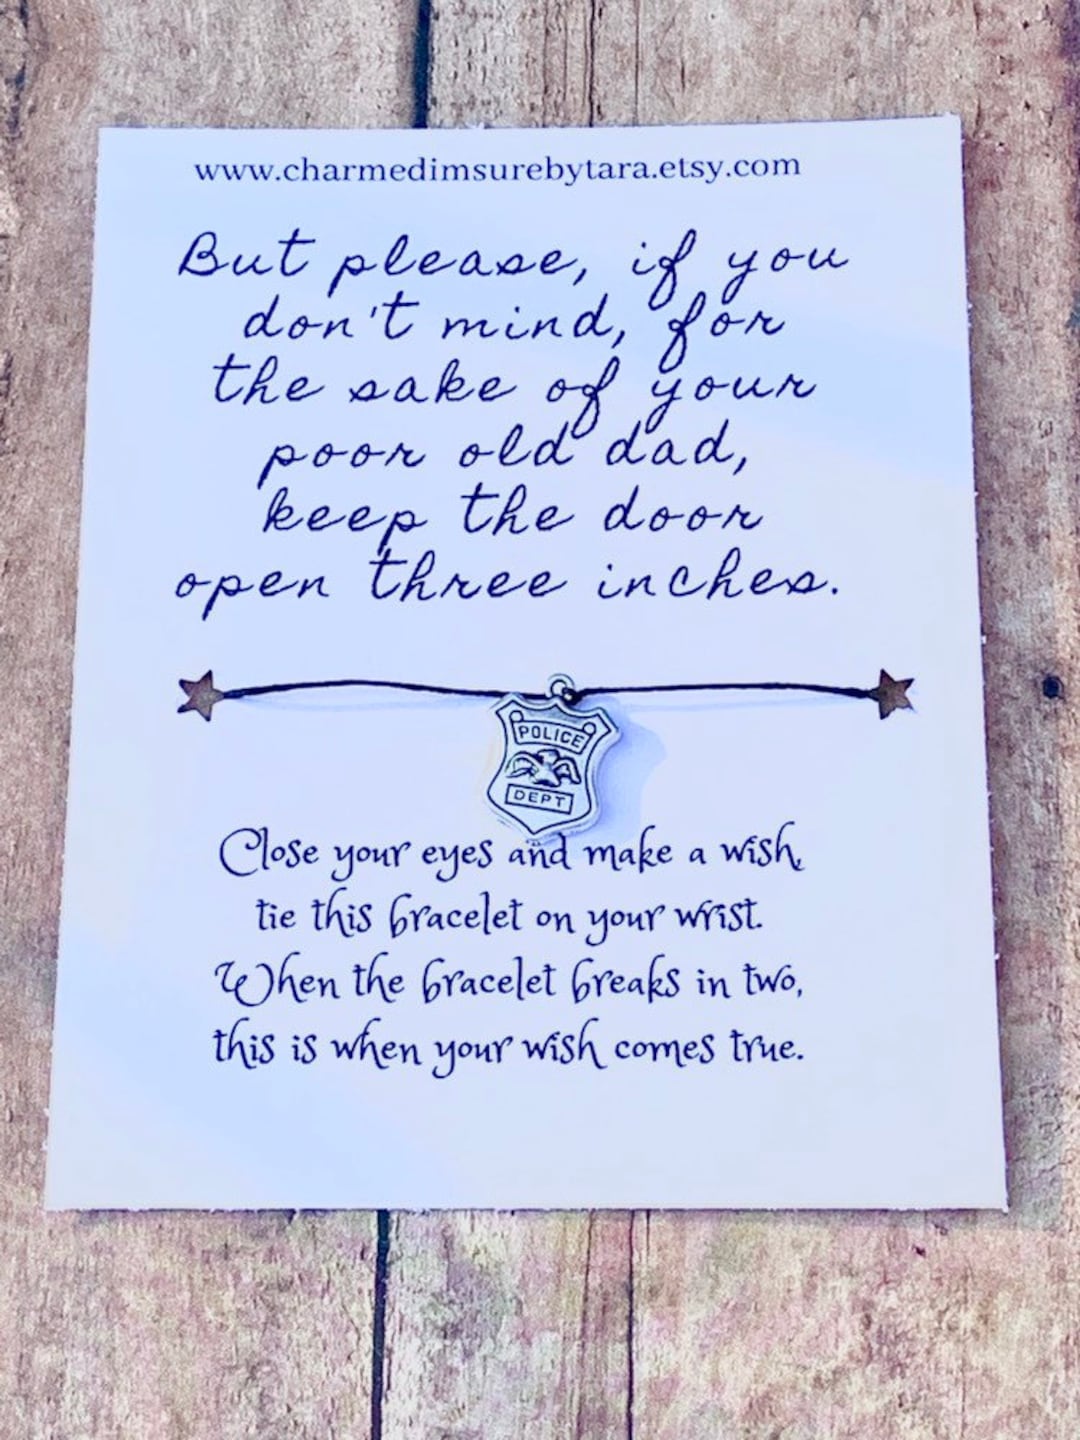 www.charmedimsurebytara.etsy.com
But please, if you
don't mind, for
the sake of your
poor old dad,
keep the door
open three inches.
POLICE
DEPT
Close your eyes and make a wish,
tie this bracelet on your wrist.
When the bracelet breaks in two,
this is when your wish comes true.